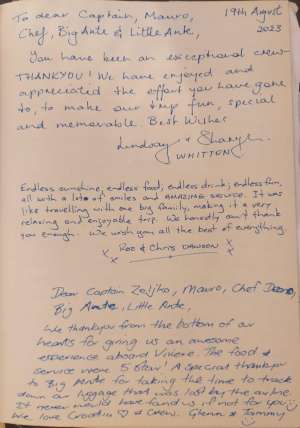 To dear Captain, Mauro, 19th August
Chef, Big Ante & Little Ante, 2023
You have been an exceptional crew
THANKYOU! We have enjoyed and
appreciated the effort you have gone
to, to make our trip fun, special
and memorable. Best Wishes
Lindsay & Sharyn
WHITTON
Endless sunshine, endless food, endless drink, endless fun,
all with a lots of smiles and AMAZING service. It was
like travelling with one big family, making it a very
relaxing and enjoyable trip. We honestly can't thank
you enough. We wish you all the best of everything
x Roe & Chris DAWSON x
x x
Dear Captain Zeljko, Mauro, Chef
Big Ante, Little Ante,
We thankyou from the bottom of our
hearts for giving us an awesome
experience aboard Vivere. The food &
service were 5 star! A special thankyou
to Big Ante for taking the time to track
down our luggage that was lost by the airline.
It never would have found us if not for you.
We love Croatia ♡ & Crew. Glenn & Tammy